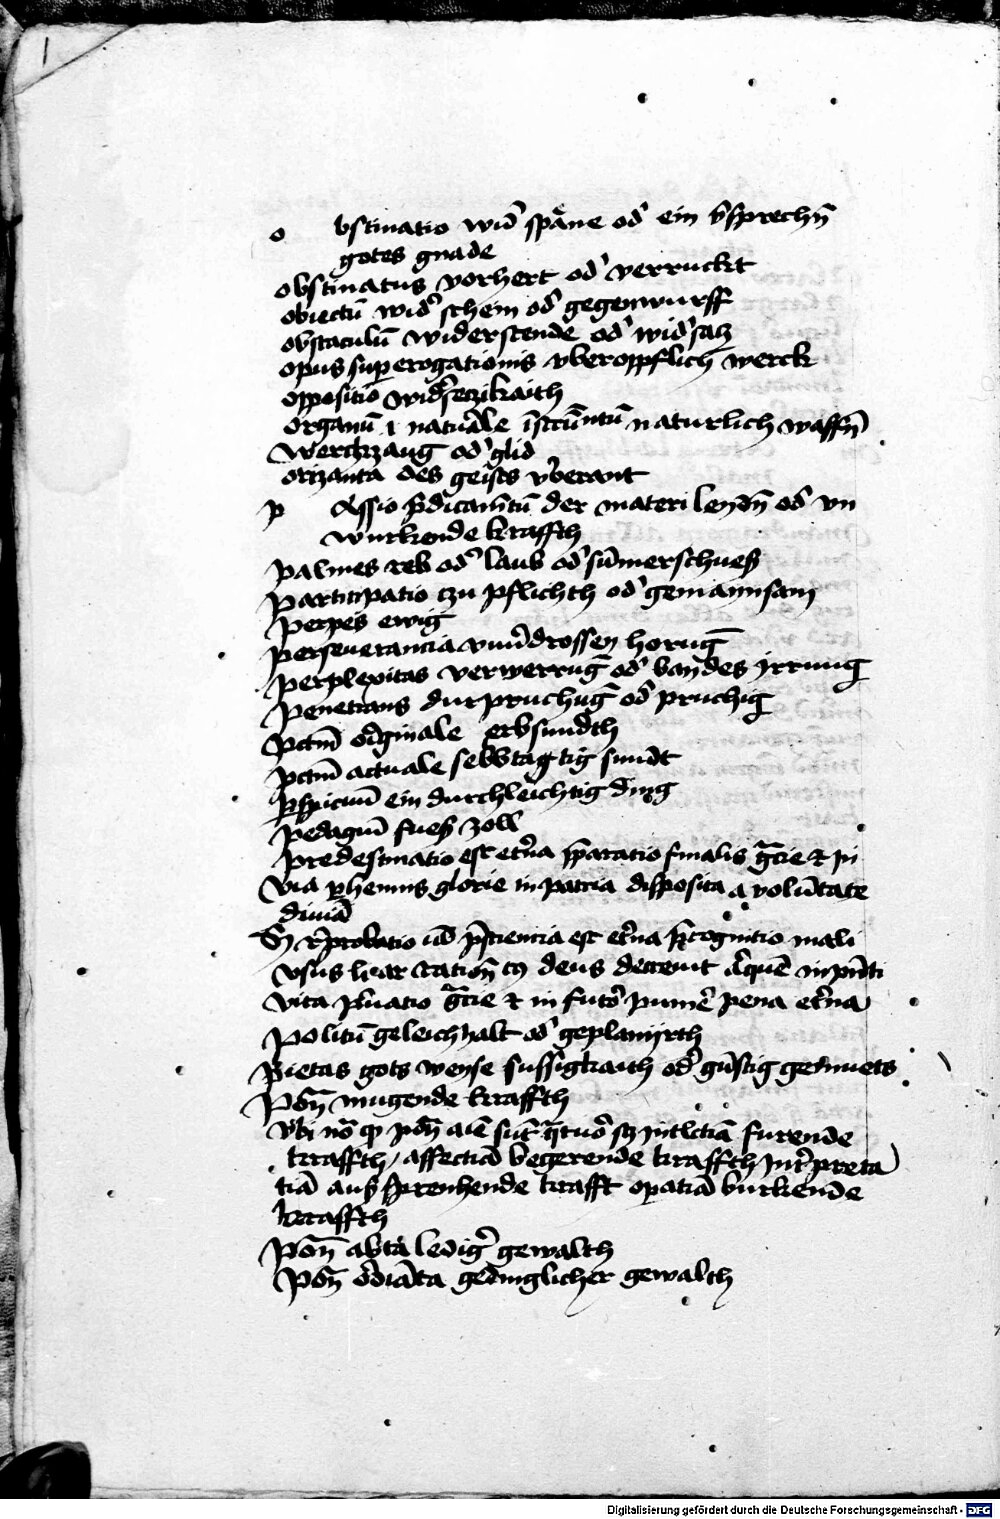 1
o bstinatio wid͛ späne od͛ ein v͛sprechn̄
gotes gnade
obstinatus vorhert od͛ verruckt
obiectū wid͛ schein od͛ gegenwurff
obstaculū widerstende od͛ wid͛ satz
opus superogationis vberopflich werck
oppositio wid͛seczikaith
organū i naturale īstrūmtū naturlich waffn̄
werckzaug od͛ glid
orizanta des geists v͛berant
p Assio p͛dicam̄tū der materi leydn̄ od͛ vn
wurkende kraffth
palmes reb od͛ laub od͛ sūmerschueß
participatio czu pflichth od͛ gemainsam
perpes ewig
perseuerancia vnu͛drossen horūg
perplexitas verwerrūg od͛ bandes jrrung
penetrans durpruchūg od͛ pruchig
pctm̄ originale erbsundth
pctm̄ actuale selbstagtig sundt
p͛spicuū ein durchleichtig ding
pedagiū fueß zoll
predestinatio est et͛na p͛paratio finalis gr̄cie & in
via p͛hennis glorie in patria disposita a volūtate
diuīa
S͛ rep͛batio ud͛ p͛sciencia est et͛na p͛cognitio mali
vsus liar rationū deus decreuit in pn̄ti
vita p͛uatio gr̄cie & in futo͛ punie͛ pena et͛na
politū geleichhalt od͛ geplanyrth
pietas gots weyse sussigkaith od͛ gūstig gemuets
pōn̄ mugende kraffth
vbi nō pōn̄ aīe sūt quatuo͛ sz intlctiā furende
kraffth / affectiā begerende kraffth int͛preta
tiā auß sprenhende krafft op͛atiā burkende
kraffth
pōn̄ abta ledig͛ gewalth
pōn̄ ordiāta gedinglicher gewalth
Digitalisierung gefördert durch die Deutsche Forschungsgemeinschaft - DFG